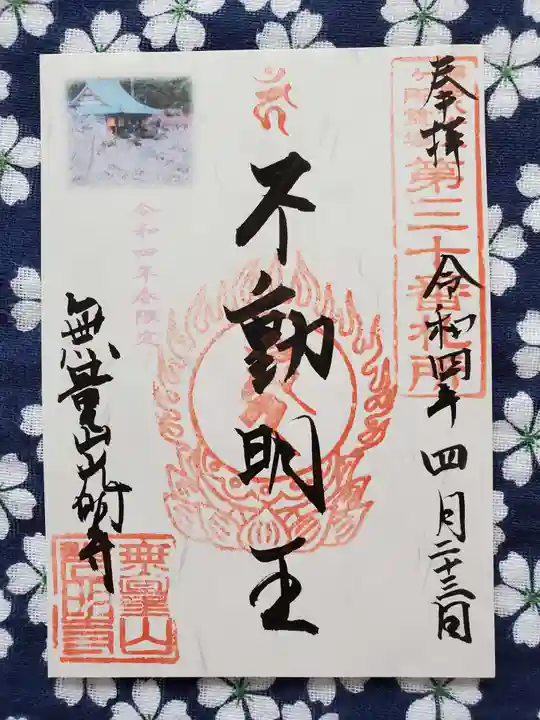 奉拝
第三十番札所
令和四年四月二十三日
不動明王
令和四年春限定
無量山光明寺
無量山光明寺